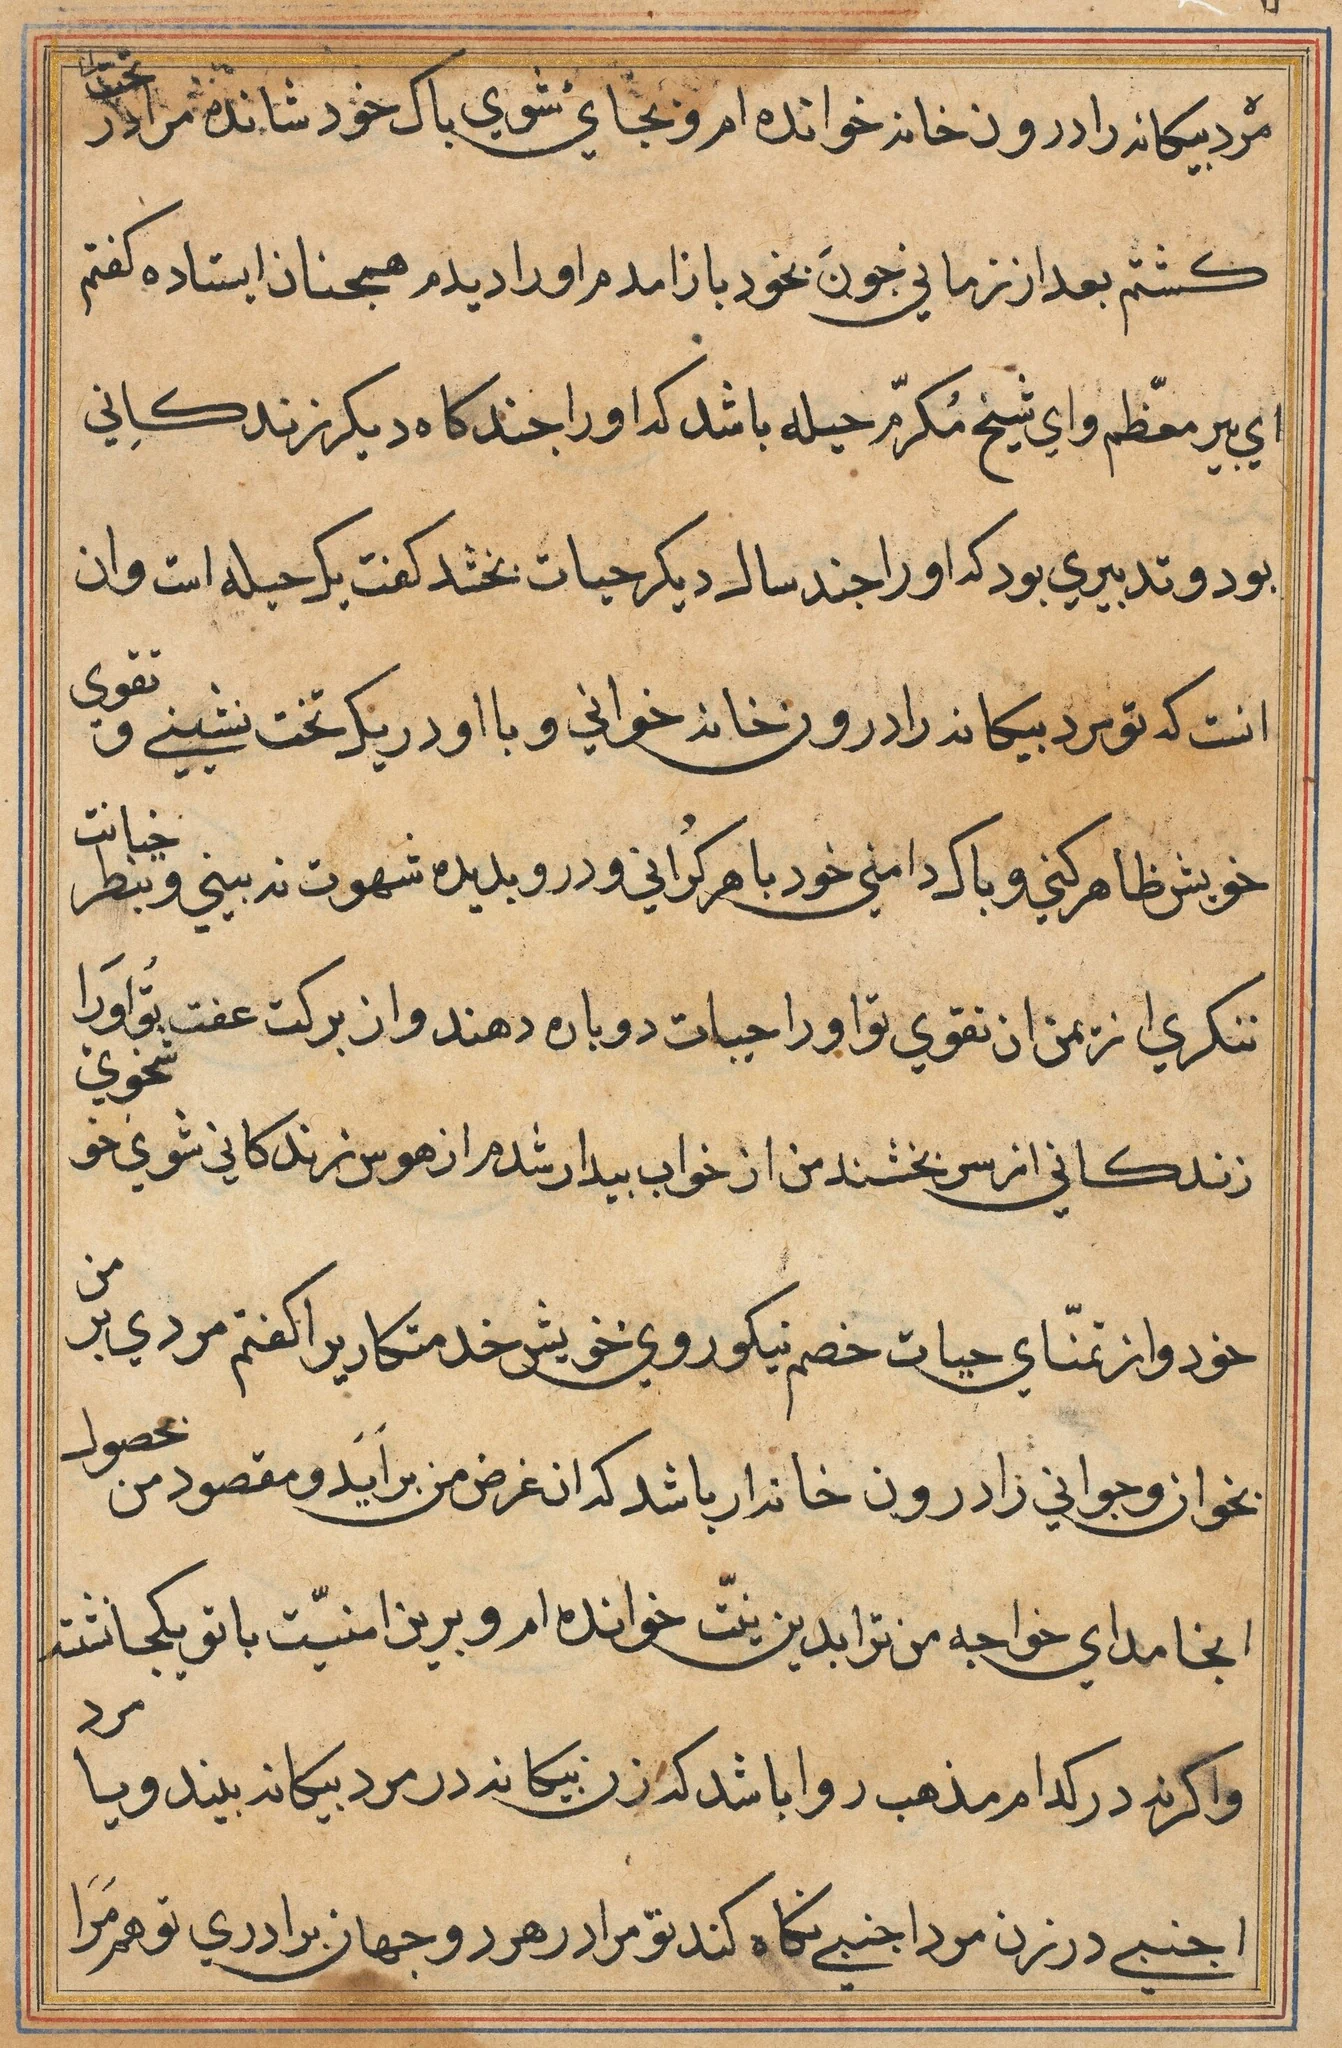 مرد بیکانه را درون خانه خوانده ام و بجای شوی باک خود شانده مرا در تحت
کشتم بعد از زمانی جون بخود باز امدم او را دیدم همجنان ایستاده کفتم
ای بیر معظّم و ای شیخ مُکرّم حیله باشد که او را جند کاه دیکر زندکانی
بود و تدبیری بود که او را جند سال دیکر حیات بخشد کفت یک حیله است وان
انست که تو مرد بیکانه را درون خانه خوانی و با او در یک تخت نشینی و تقوی
خویش ظاهر کنی و باک دامنی خود باهر کُرانی و در و بدیده شهوت نه بینی و بنظر خیانت
ننکری از یمن ان تقوی تو او را حیات دوباره دهند و از برکت عفت تو او را
زندکانی از سر بخشند من از خواب بیدار شدم از هوس زندکانی شوی خو شخوی
خود و از تمنّای حیات خصم نیکو روی خویش خدمتکاریرا کفتم مردی بر من
بخوان و جوانی را درون خانه ار باشد که ان غرض من براید و مقصود من بحصول
انجامد ای خواجه من ترا بدین نیّت خوانده ام و برین امنیّت با تو یکجا نشسته
واکرنه در کدام مذهب روا باشد که زن بیکانه در مرد بیکانه بیند و یا مرد
اجنبی در زن مرد اجنبی نکاه کند تو مرا در هر دو جهان برادری تو هم مرا